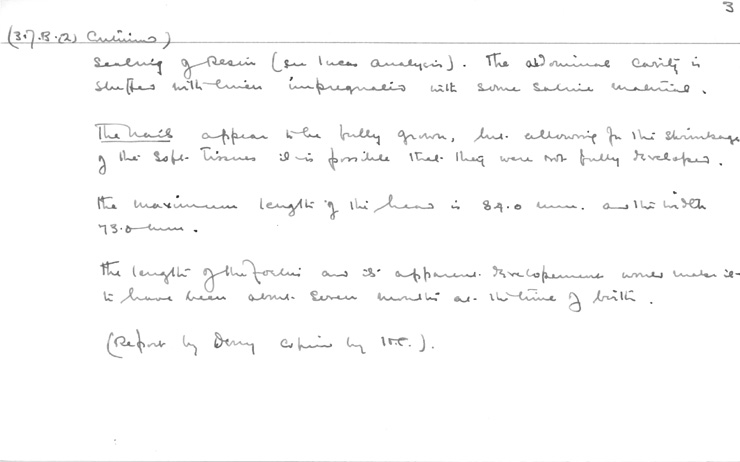 3
(317.B.(2) Continued)
sealing of Resin (see Lucas analysis). The abdominal cavity is
stuffed with linen impregnated with some saline material.
The nails appear to be fully grown, but allowing for the shrinkage
of the soft tissues it is possible that they were not fully developed.
The maximum length of the head is 84.0 mm. and the width
73.0 mm.
The length of the foetus and its apparent developement would make it
to have been about seven months at the time of birth.
(Report by Derry copied by H.C.).